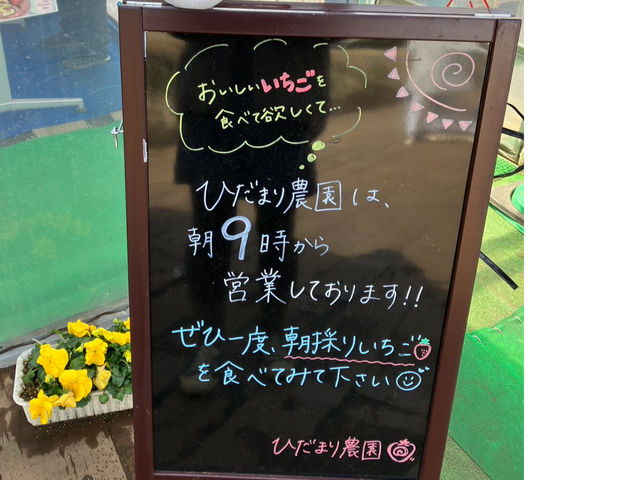 おいしいいちごを
食べて欲しくて…
ひだまり農園は、
朝9時から
営業しております!!
ぜひ一度、朝採りいちご
を食べてみて下さい
ひだまり農園